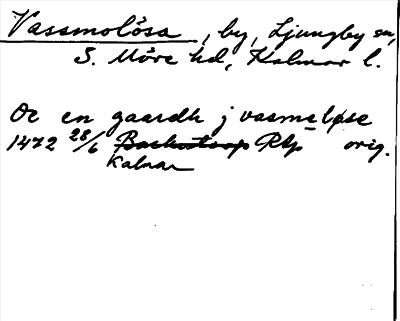 Vassmolösa, by, Ljungby sn,
S. Möre hd, Kalmar l.
Oc en gaardh j vasmeløse
1472 28/6 Rbp orig.
Kalmar